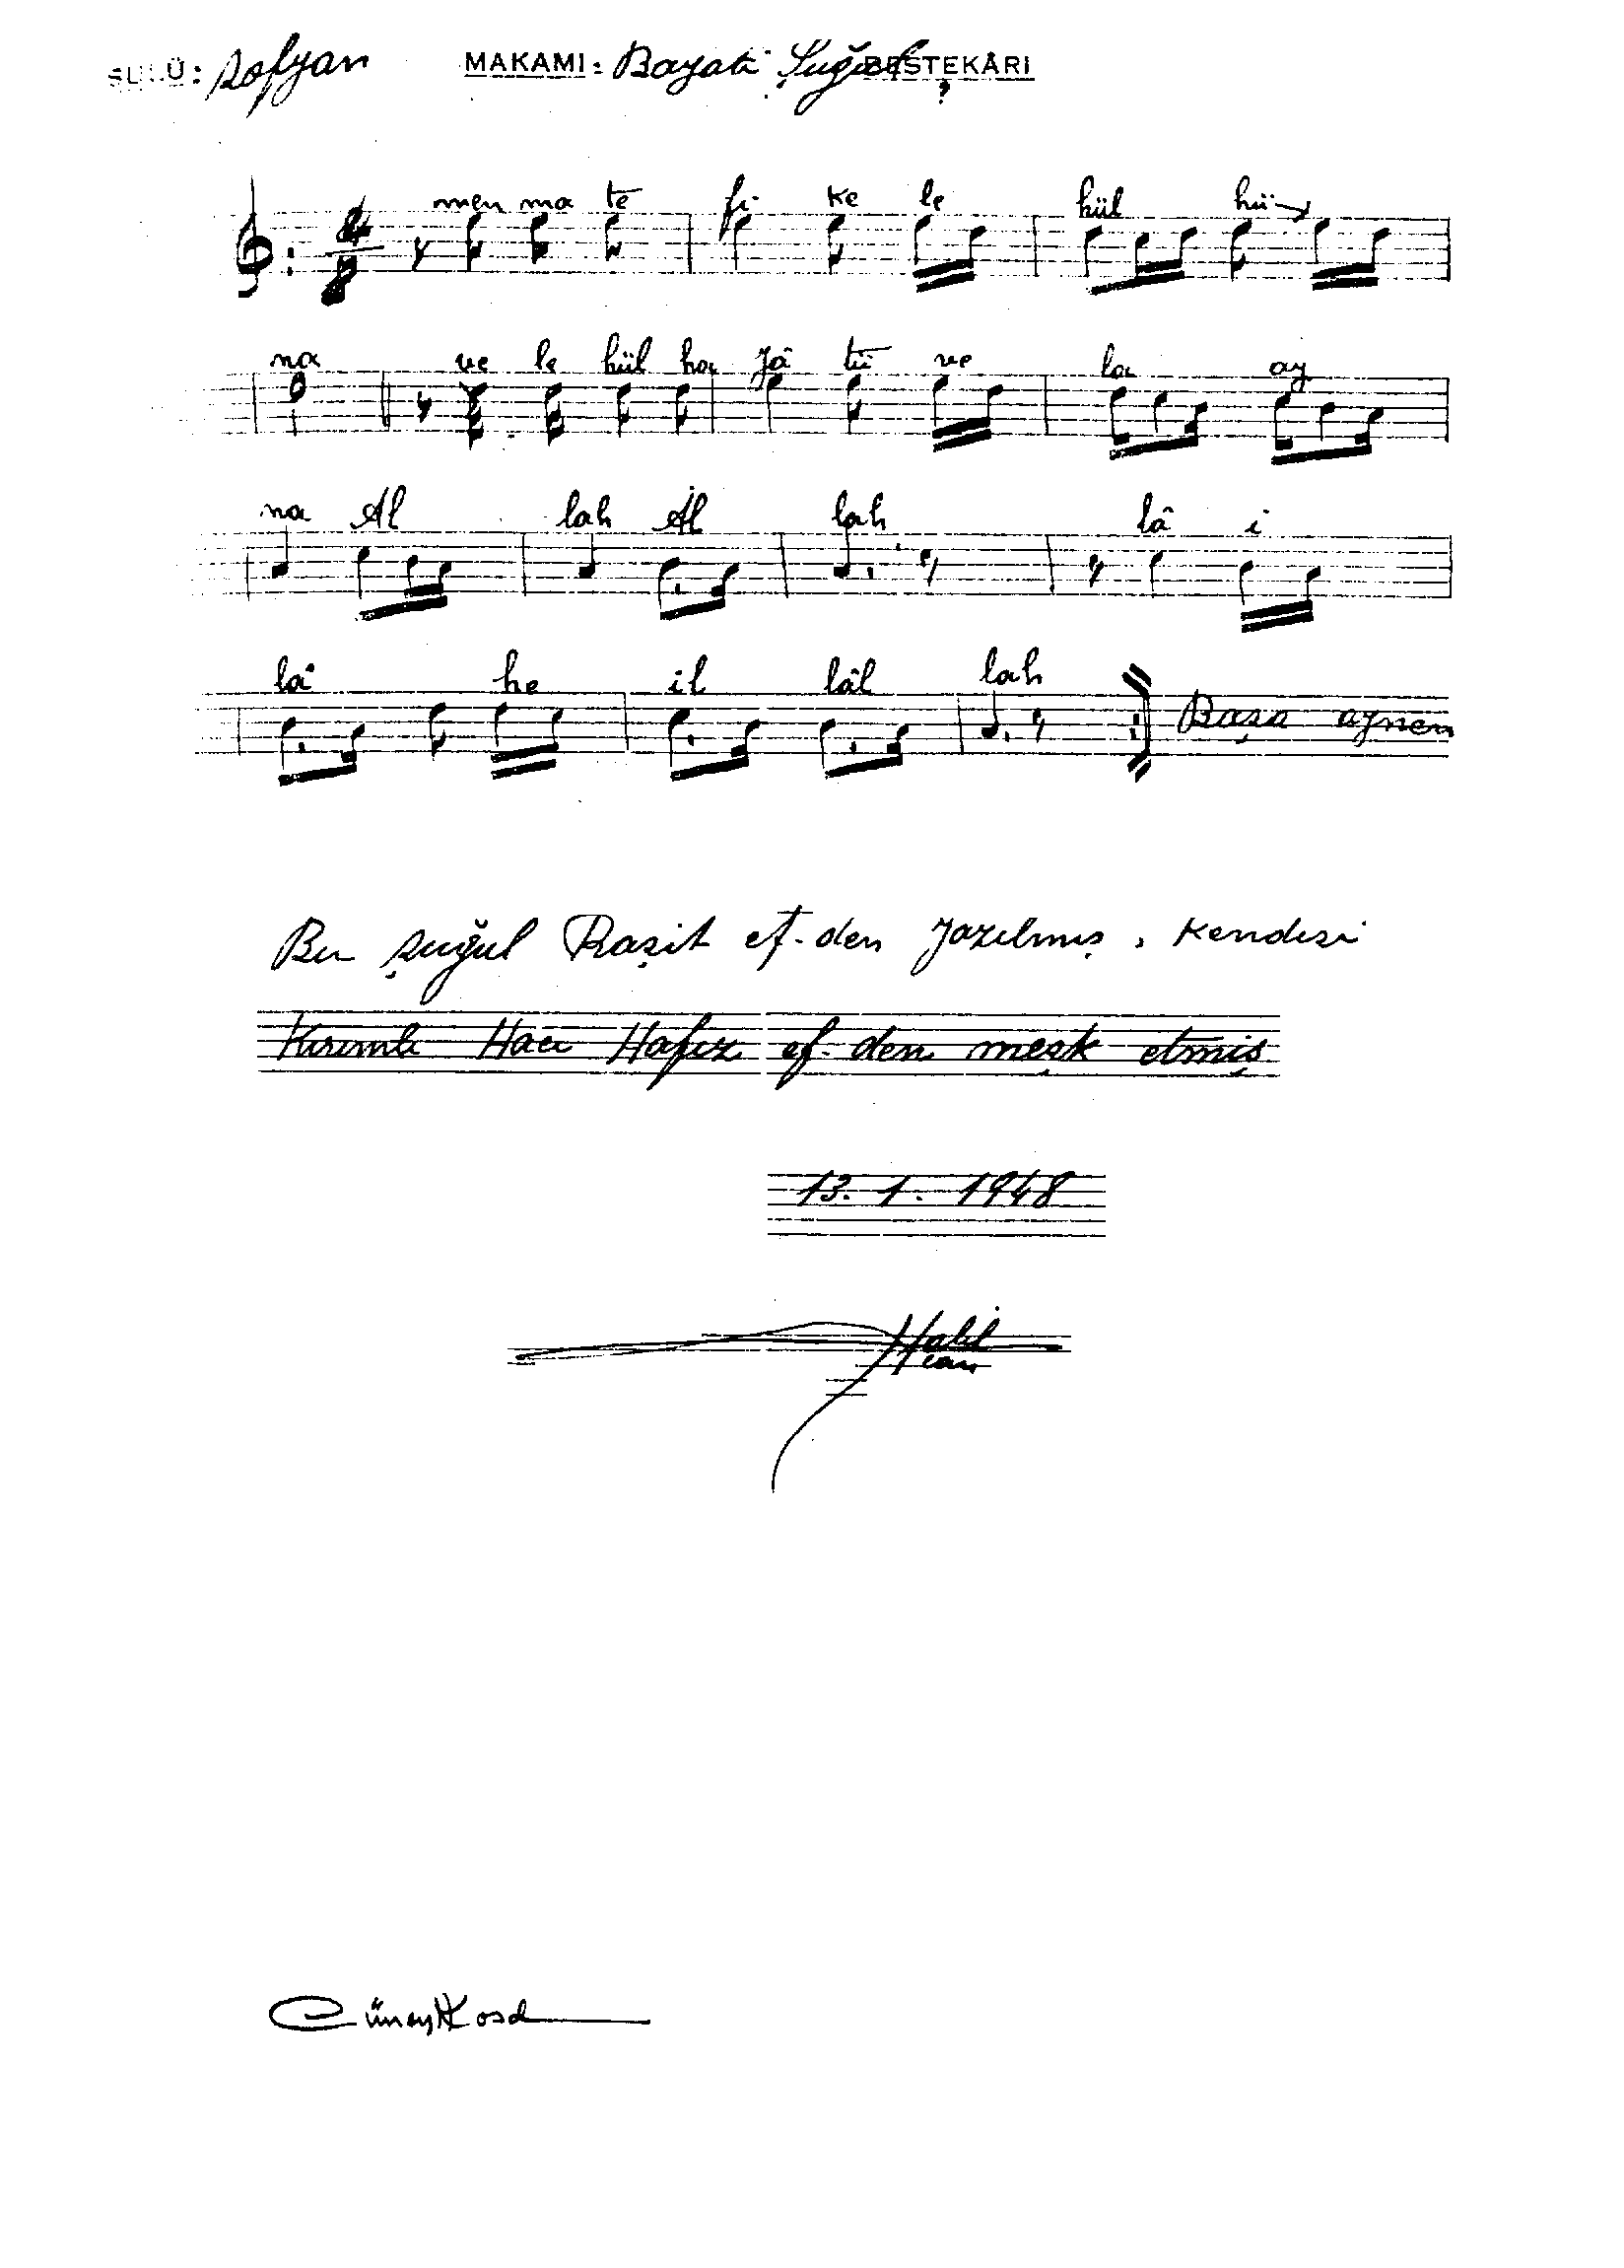 SULÜ: Sofyan MAKAMI: Bayati Şuğul BESTEKÂRI ?
4
8
men ma te fi ke le hül hü
na ve le hül ha yâ tü ve la ay
na Al lah Al lah lâ i
lâ he il lâl lah Başa aynen
Bu şuğul Raşit ef-den yazılmış, kendisi
Kırımlı Hacı Hafız ef-den meşk etmiş
13. 1. 1948
Halil
can